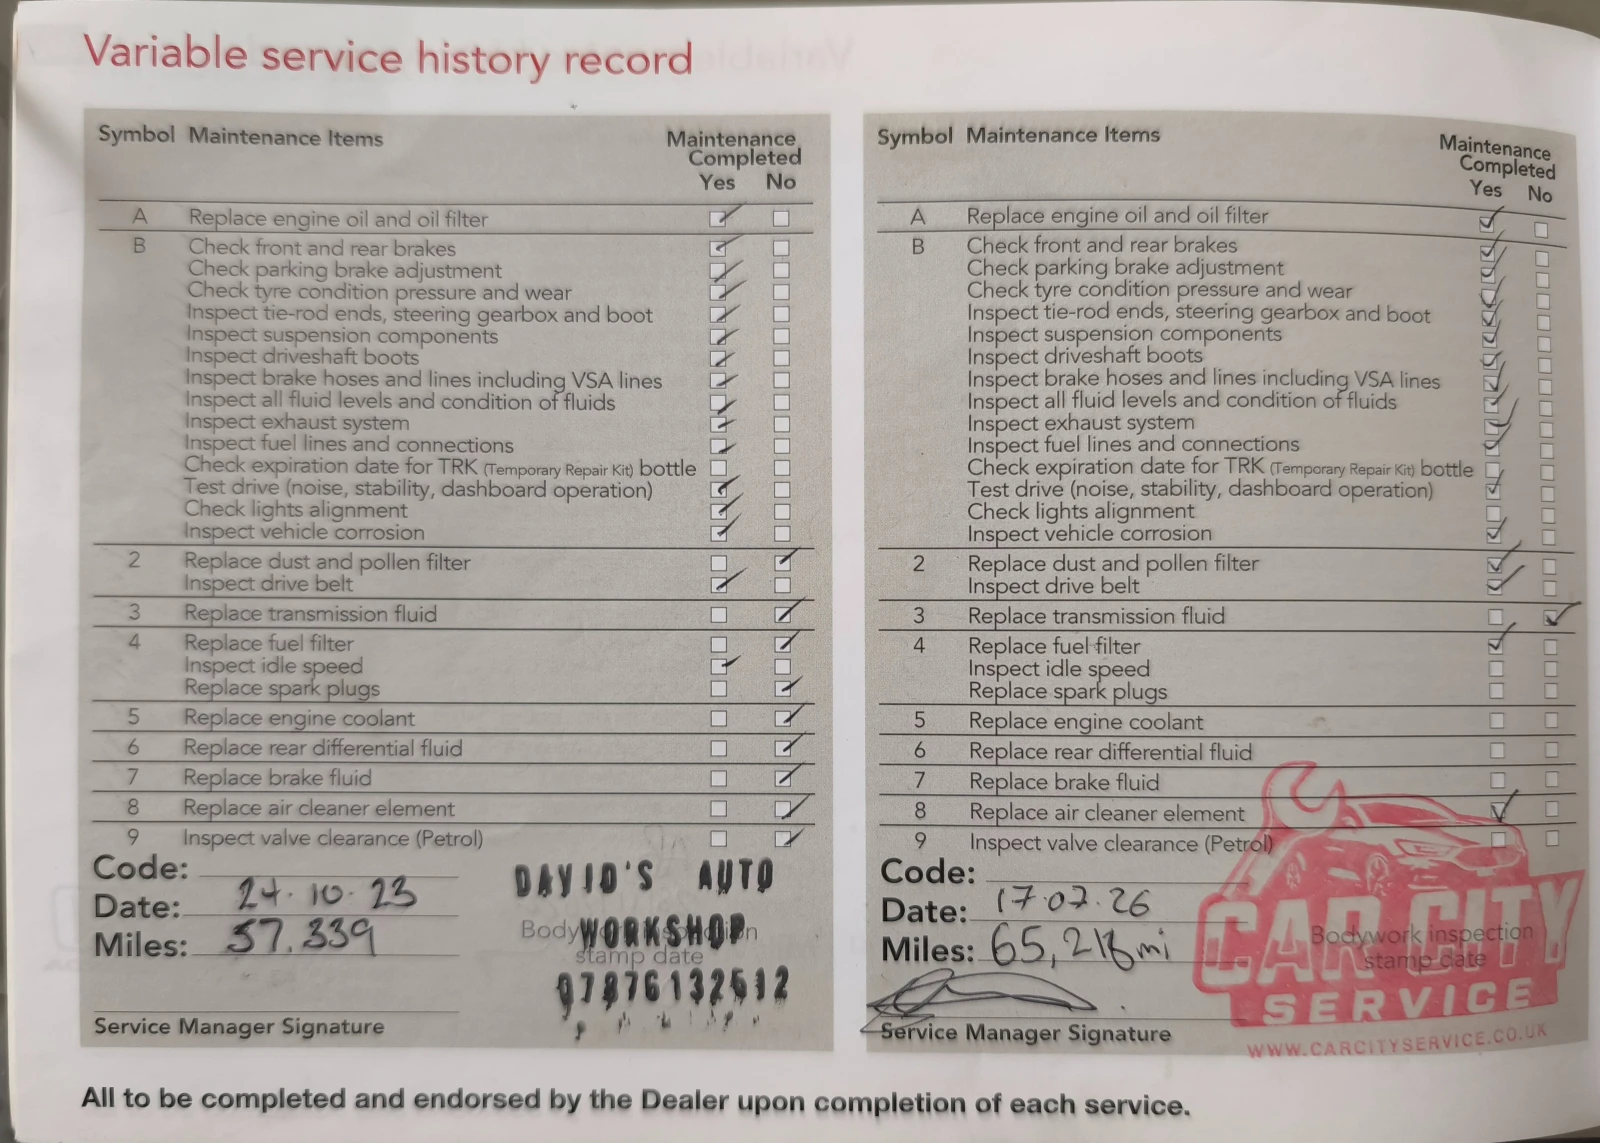 Variable service history record
Symbol Maintenance Items Maintenance Completed Yes No
A Replace engine oil and oil filter
B Check front and rear brakes
Check parking brake adjustment
Check tyre condition pressure and wear
Inspect tie-rod ends, steering gearbox and boot
Inspect suspension components
Inspect driveshaft boots
Inspect brake hoses and lines including VSA lines
Inspect all fluid levels and condition of fluids
Inspect exhaust system
Inspect fuel lines and connections
Check expiration date for TRK (Temporary Repair Kit) bottle
Test drive (noise, stability, dashboard operation)
Check lights alignment
Inspect vehicle corrosion
2 Replace dust and pollen filter
Inspect drive belt
3 Replace transmission fluid
4 Replace fuel filter
Inspect idle speed
Replace spark plugs
5 Replace engine coolant
6 Replace rear differential fluid
7 Replace brake fluid
8 Replace air cleaner element
9 Inspect valve clearance (Petrol)
Code:
Date: 24.10.23
Miles: 57.339
DAVID'S AUTO
WORKSHOP
stamp date
07876132612
Service Manager Signature
Symbol Maintenance Items Maintenance Completed Yes No
A Replace engine oil and oil filter
B Check front and rear brakes
Check parking brake adjustment
Check tyre condition pressure and wear
Inspect tie-rod ends, steering gearbox and boot
Inspect suspension components
Inspect driveshaft boots
Inspect brake hoses and lines including VSA lines
Inspect all fluid levels and condition of fluids
Inspect exhaust system
Inspect fuel lines and connections
Check expiration date for TRK (Temporary Repair Kit) bottle
Test drive (noise, stability, dashboard operation)
Check lights alignment
Inspect vehicle corrosion
2 Replace dust and pollen filter
Inspect drive belt
3 Replace transmission fluid
4 Replace fuel filter
Inspect idle speed
Replace spark plugs
5 Replace engine coolant
6 Replace rear differential fluid
7 Replace brake fluid
8 Replace air cleaner element
9 Inspect valve clearance (Petrol)
Code:
Date: 17.02.26
Miles: 65,218mi
Bodywork inspection
stamp date
CAR CITY
SERVICE
WWW.CARCITYSERVICE.CO.UK
Service Manager Signature
All to be completed and endorsed by the Dealer upon completion of each service.